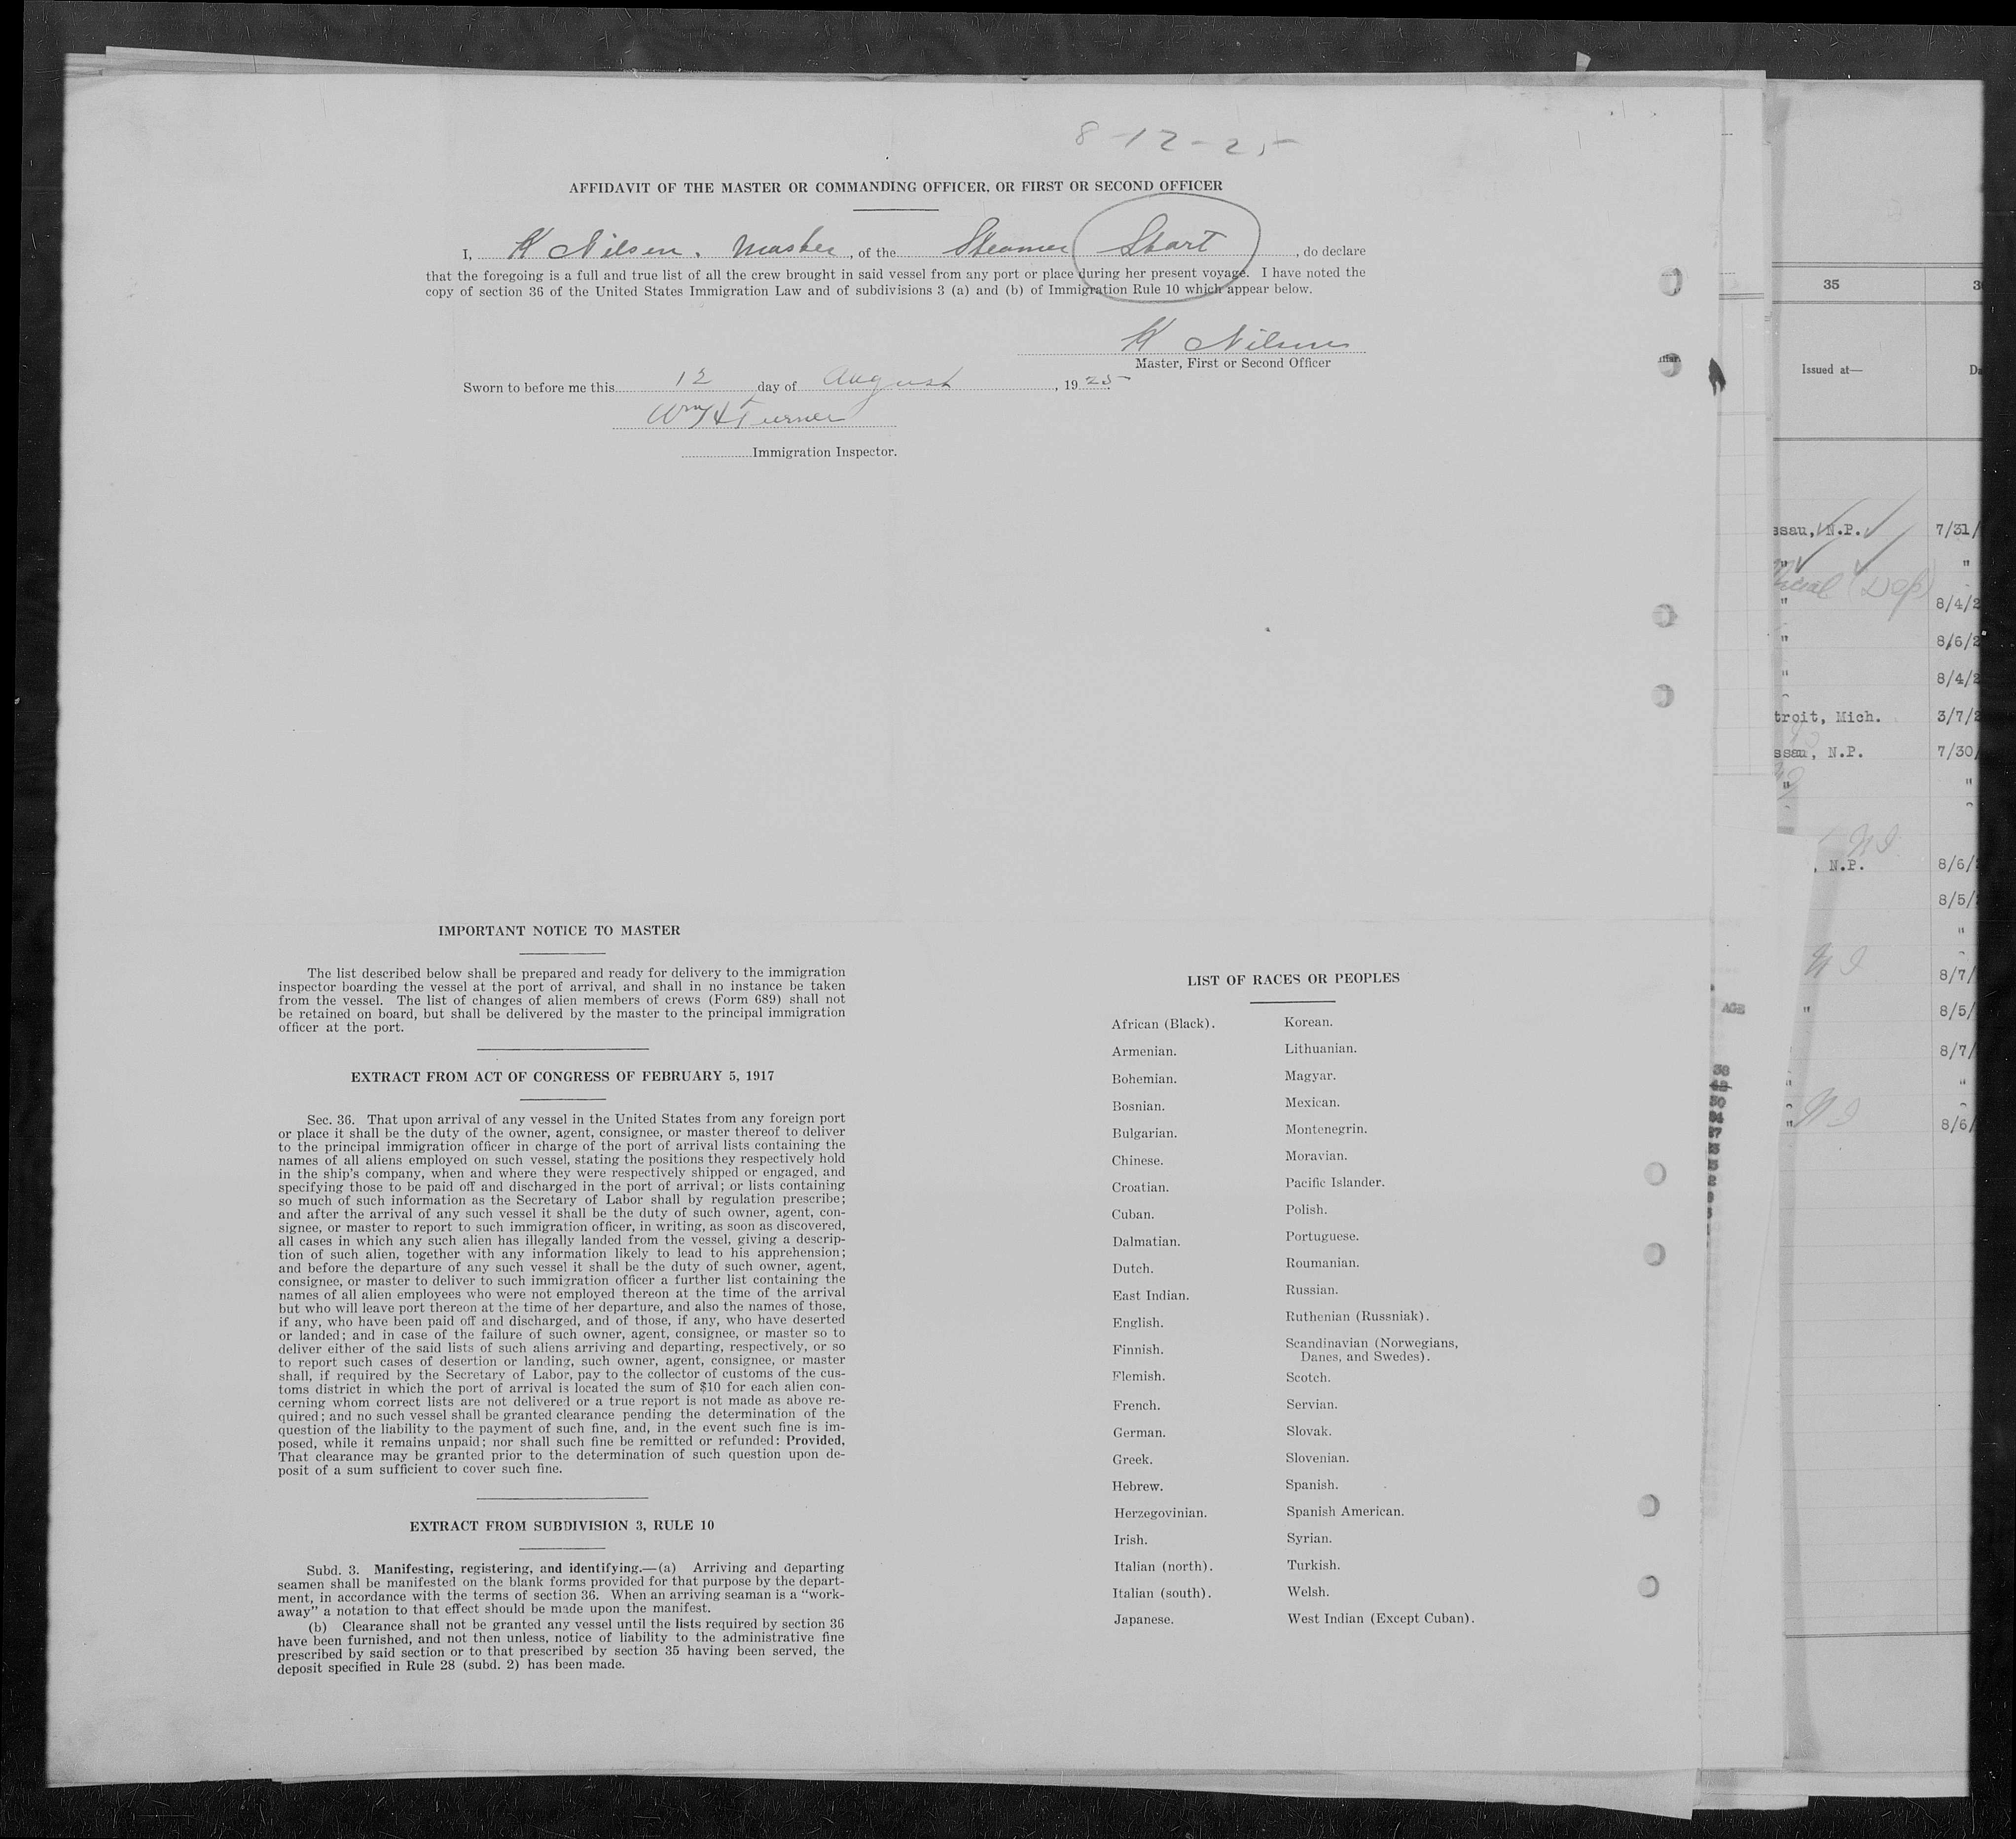 8-12-25
AFFIDAVIT OF THE MASTER OR COMMANDING OFFICER, OR FIRST OR SECOND OFFICER
I, K Nilsen. Master, of the Steamer Start, do declare
that the foregoing is a full and true list of all the crew brought in said vessel from any port or place during her present voyage. I have noted the
copy of section 36 of the United States Immigration Law and of subdivisions 3 (a) and (b) of Immigration Rule 10 which appear below.
K Nilsen
Master, First or Second Officer
Sworn to before me this 12 day of August, 1925
Wm H Turner
Immigration Inspector.
IMPORTANT NOTICE TO MASTER
The list described below shall be prepared and ready for delivery to the immigration
inspector boarding the vessel at the port of arrival, and shall in no instance be taken
from the vessel. The list of changes of alien members of crews (Form 689) shall not
be retained on board, but shall be delivered by the master to the principal immigration
officer at the port.
EXTRACT FROM ACT OF CONGRESS OF FEBRUARY 5, 1917
Sec. 36. That upon arrival of any vessel in the United States from any foreign port
or place it shall be the duty of the owner, agent, consignee, or master thereof to deliver
to the principal immigration officer in charge of the port of arrival lists containing the
names of all aliens employed on such vessel, stating the positions they respectively hold
in the ship's company, when and where they were respectively shipped or engaged, and
specifying those to be paid off and discharged in the port of arrival; or lists containing
so much of such information as the Secretary of Labor shall by regulation prescribe;
and after the arrival of any such vessel it shall be the duty of such owner, agent, con-
signee, or master to report to such immigration officer, in writing, as soon as discovered,
all cases in which any such alien has illegally landed from the vessel, giving a descrip-
tion of such alien, together with any information likely to lead to his apprehension;
and before the departure of any such vessel it shall be the duty of such owner, agent,
consignee, or master to deliver to such immigration officer a further list containing the
names of all alien employees who were not employed thereon at the time of the arrival
but who will leave port thereon at the time of her departure, and also the names of those,
if any, who have been paid off and discharged, and of those, if any, who have deserted
or landed; and in case of the failure of such owner, agent, consignee, or master so to
deliver either of the said lists of such aliens arriving and departing, respectively, or so
to report such cases of desertion or landing, such owner, agent, consignee, or master
shall, if required by the Secretary of Labor, pay to the collector of customs of the cus-
toms district in which the port of arrival is located the sum of $10 for each alien con-
cerning whom correct lists are not delivered or a true report is not made as above re-
quired; and no such vessel shall be granted clearance pending the determination of the
question of the liability to the payment of such fine, and, in the event such fine is im-
posed, while it remains unpaid; nor shall such fine be remitted or refunded: Provided,
That clearance may be granted prior to the determination of such question upon de-
posit of a sum sufficient to cover such fine.
EXTRACT FROM SUBDIVISION 3, RULE 10
Subd. 3. Manifesting, registering, and identifying.—(a) Arriving and departing
seamen shall be manifested on the blank forms provided for that purpose by the depart-
ment, in accordance with the terms of section 36. When an arriving seaman is a "work-
away" a notation to that effect should be made upon the manifest.
(b) Clearance shall not be granted any vessel until the lists required by section 36
have been furnished, and not then unless, notice of liability to the administrative fine
prescribed by said section or to that prescribed by section 35 having been served, the
deposit specified in Rule 28 (subd. 2) has been made.
LIST OF RACES OR PEOPLES
African (Black).
Armenian.
Bohemian.
Bosnian.
Bulgarian.
Chinese.
Croatian.
Cuban.
Dalmatian.
Dutch.
East Indian.
English.
Finnish.
Flemish.
French.
German.
Greek.
Hebrew.
Herzegovinian.
Irish.
Italian (north).
Italian (south).
Japanese.
Korean.
Lithuanian.
Magyar.
Mexican.
Montenegrin.
Moravian.
Pacific Islander.
Polish.
Portuguese.
Roumanian.
Russian.
Ruthenian (Russniak).
Scandinavian (Norwegians,
Danes, and Swedes).
Scotch.
Servian.
Slovak.
Slovenian.
Spanish.
Spanish American.
Syrian.
Turkish.
Welsh.
West Indian (Except Cuban).
AGE
35
Issued at—
ssau, N.P. 7/31/
" "
(Dep)
" 8/4/2
" 8/6/2
" 8/4/2
troit, Mich. 3/7/2
ssau, N.P. 7/30/
" "
N I
, N.P. 8/6/
8/5/
"
N I 8/7/
" 8/5/
8/7/
" "
" N I 8/6/